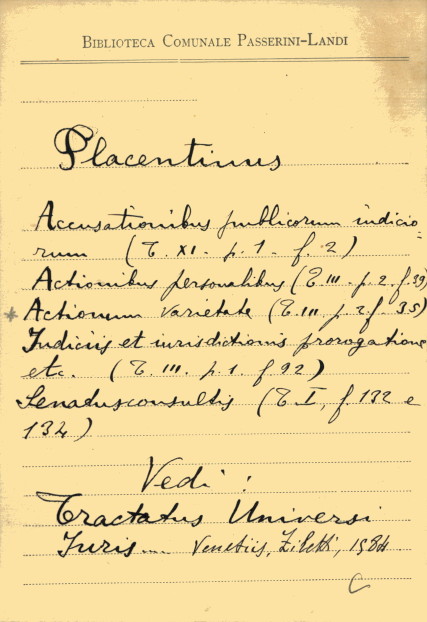 BIBLIOTECA COMUNALE PASSERINI-LANDI
Placentinus
Accusationibus publicorum indicio-
rum (T. XI. p. 1 - f. 2)
Actionibus personalibus (T. III. p. 2. f. 39)
+ Actionum varietate (T. III. p. 2 f. 35)
Indiciis et iurisdictionis prorogatione
etc. (T. III. p. 1. f. 92)
Senadusconsultis (T. I, f. 132 e
134)
Vedi:
Tractatus Universi
Juris.... Venetiis, Ziletti, 1584
C